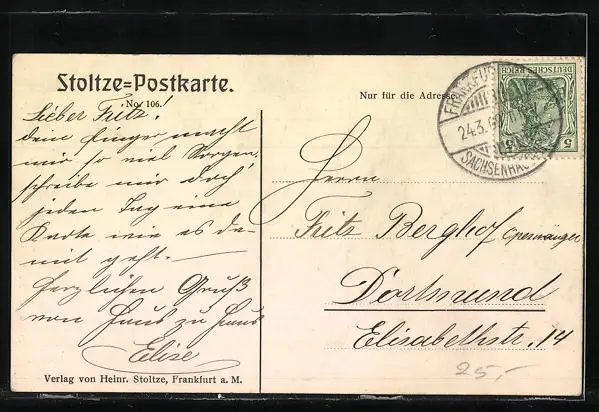 Stoltze=Postkarte.
No. 106.
Nur für die Adresse
Lieber Fritz!
dein Finger macht
mir so viel Sorgen,
schreibe mir doch
jeden Tag eine
Karte wie es da-
mit geht.
Herzlichen Gruß
von Haus zu Haus
Elise
Verlag von Heinr. Stoltze, Frankfurt a. M.
DEUTSCHES REICH
5 5
FRANKFURT
24.3.
SACHSENHAUSEN
Herrn
Fritz Berghof Opernsänger
Dortmund
Elisabethstr. 14
25,-